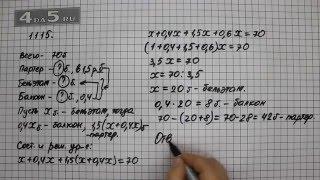 4DA5.RU
1115.
Всего - 70 б.
Партер - ? б, в 1,5 р. б
Бельэтаж - ? б.
Балкон - ? б., 0,4
Пусть x б - бельэтаж, тогда
0,4x б - балкон, 1,5(x+0,4x) б - партер.
Сост. и реш. ур-е:
x+0,4x+1,5(x+0,4x)=70
x+0,4x+1,5x+0,6x=70
(1+0,4+1,5+0,6)x=70
3,5x=70
x=70:3,5
x=20 б - бельэтаж.
0,4·20=8 б - балкон
70-(20+8)=70-28=42 б - партер
Отв